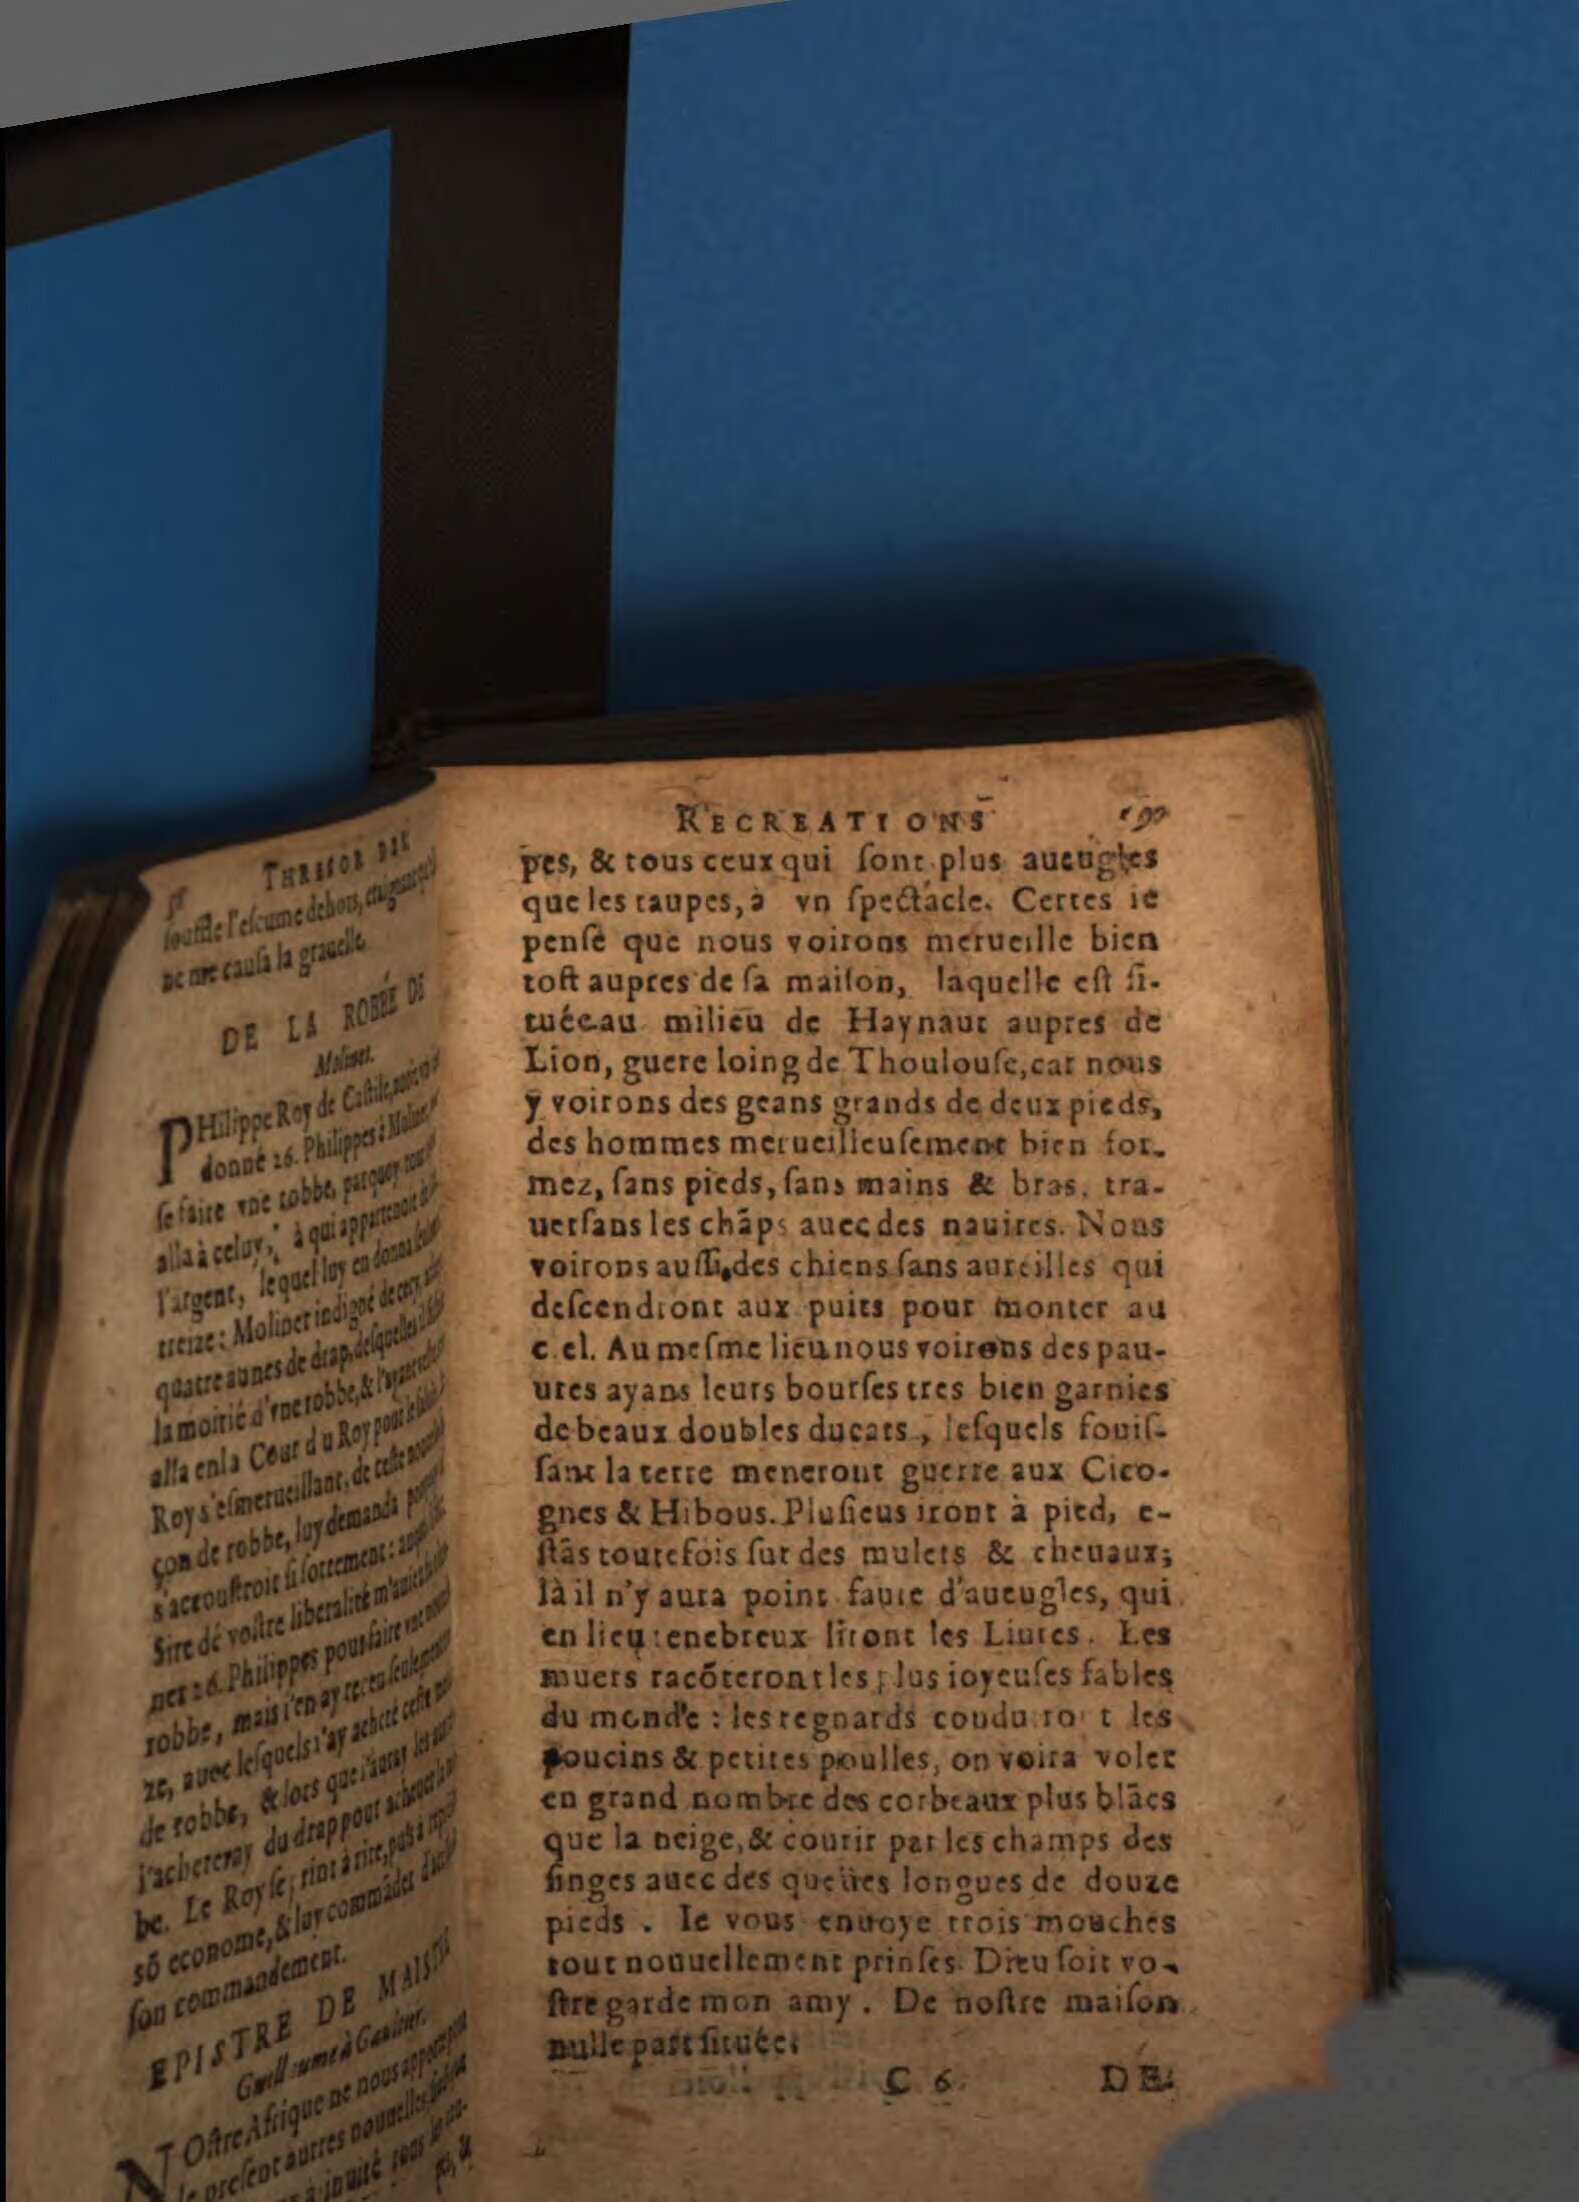 THRESOR DES
souffle l'escume dehors, craignant qu'el
ne me causa la grauelle.
DE LA ROBBE DE
Molinet.
PHilippe Roy de Castile,
donné 26. Philippes à Molinet,
se faire vne robbe, parquoy
alla à celuy, à qui appartenoit
l'argent, lequel luy en donna
treize: Molinet indigné de cecy,
quatre aunes de drap, desquelles
la moitié d'vne robbe, &
alla en la Cour du Roy pour
Roy s'esmerueillant, de ceste
çon de robbe, luy demanda
s'accoustroit si sottement:
Sire de vostre liberalité
ner 26. Philippes pour faire vne
robbe, mais i'en ay receu seulement
ze, auec lesquels i'ay acheté ceste
de robbe, & lors que i'auray les
i'acheteray du drap pour acheuer
be. Le Roy se print à rire, puis
sō econome, & luy commādes
son commandement.
EPISTRE DE MAISTRE
Guillaume à Gautier.
NOstre Afrique ne nous
le present autres nouuelles
à inuité tous
pes, &
RECREATIONS
pes, & tous ceux qui ſont plus aueugles
que les taupes, à vn ſpectacle. Certes ie
penſe que nous voirons merueille bien
toſt aupres de ſa maiſon, laquelle eſt ſi-
tuée au milieu de Haynaut aupres de
Lion, guere loing de Thoulouſe, car nous
y voirons des geans grands de deux pieds,
des hommes merueilleuſement bien for-
mez, ſans pieds, ſans mains & bras, tra-
uerſans les chāps auec des nauires. Nous
voirons auſſi, des chiens ſans aureilles qui
deſcendront aux puits pour monter au
c el. Au meſme lieu nous voirons des pau-
ures ayans leurs bourſes tres bien garnies
de beaux doubles ducats, leſquels fouiſ-
ſant la terre meneront guerre aux Cico-
gnes & Hibous. Pluſieus iront à pied, e-
ſtās toutefois ſur des mulets & cheuaux;
là il n'y aura point faute d'aueugles, qui
en lieu tenebreux liront les Liures. Les
muets racōteront les plus ioyeuſes fables
du monde : les regnards coudu ro t les
poucins & petites poulles, on voira voler
en grand nombre des corbeaux plus blācs
que la neige, & courir par les champs des
ſinges auec des queües longues de douze
pieds . Ie vous enuoye trois mouches
tout nouuellement prinſes. Dieu ſoit vo-
ſtre garde mon amy . De noſtre maiſon
nulle part ſituée.
C 6 DE